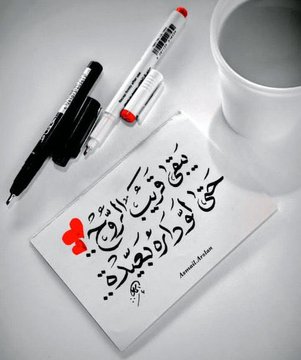 يبقى قريب الروح
حتى لو داره بعيدة
Asmail_Arslan